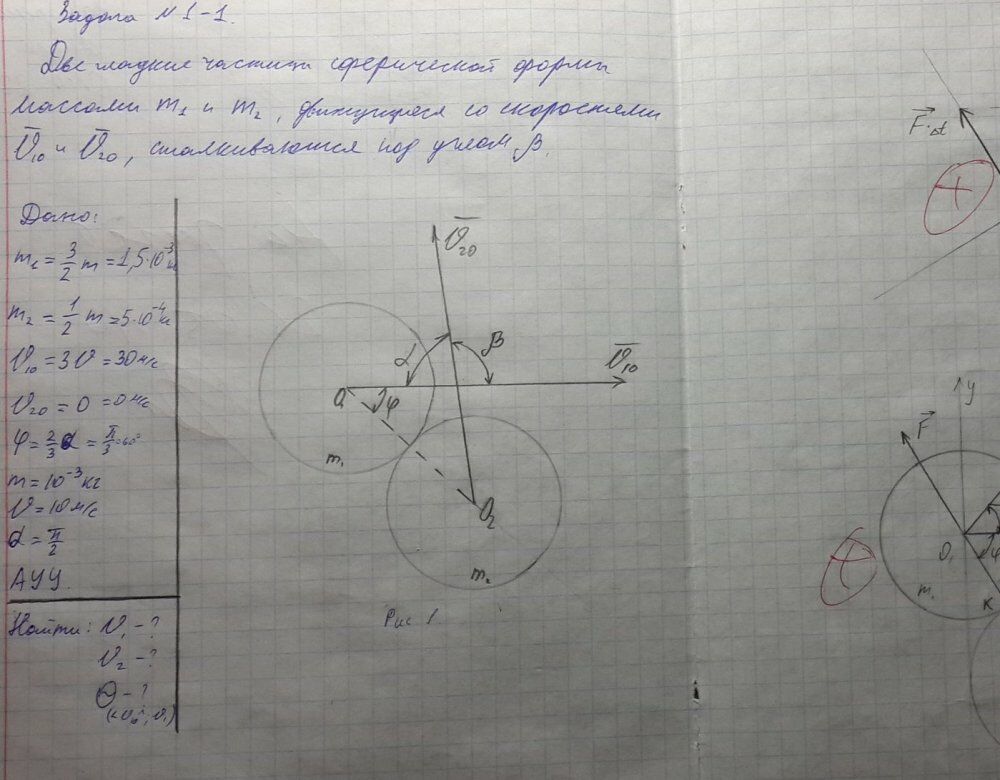 Задача №1-1.
Две гладкие частицы сферической формы
массами m₁ и m₂, движущиеся со скоростями
V̅₁₀ и V̅₂₀, сталкиваются под углом β.
Дано:
m₁ = 3/2 m = 1,5·10⁻³ кг
m₂ = 1/2 m = 5·10⁻⁴ кг
V₁₀ = 3V = 30 м/с
V₂₀ = 0 = 0 м/с
φ = 2/3 α = π/3 = 60°
m = 10⁻³ кг
V = 10 м/с
α = π/2
АУУ.
Найти: V₁ - ?
V₂ - ?
Θ - ?
V̅₂₀
α
β
V̅₁₀
O₁
φ
m₁
O₂
m₂
Рис 1
F⃗·Δt
+
y
F⃗
O₁
φ
m₁
K
+